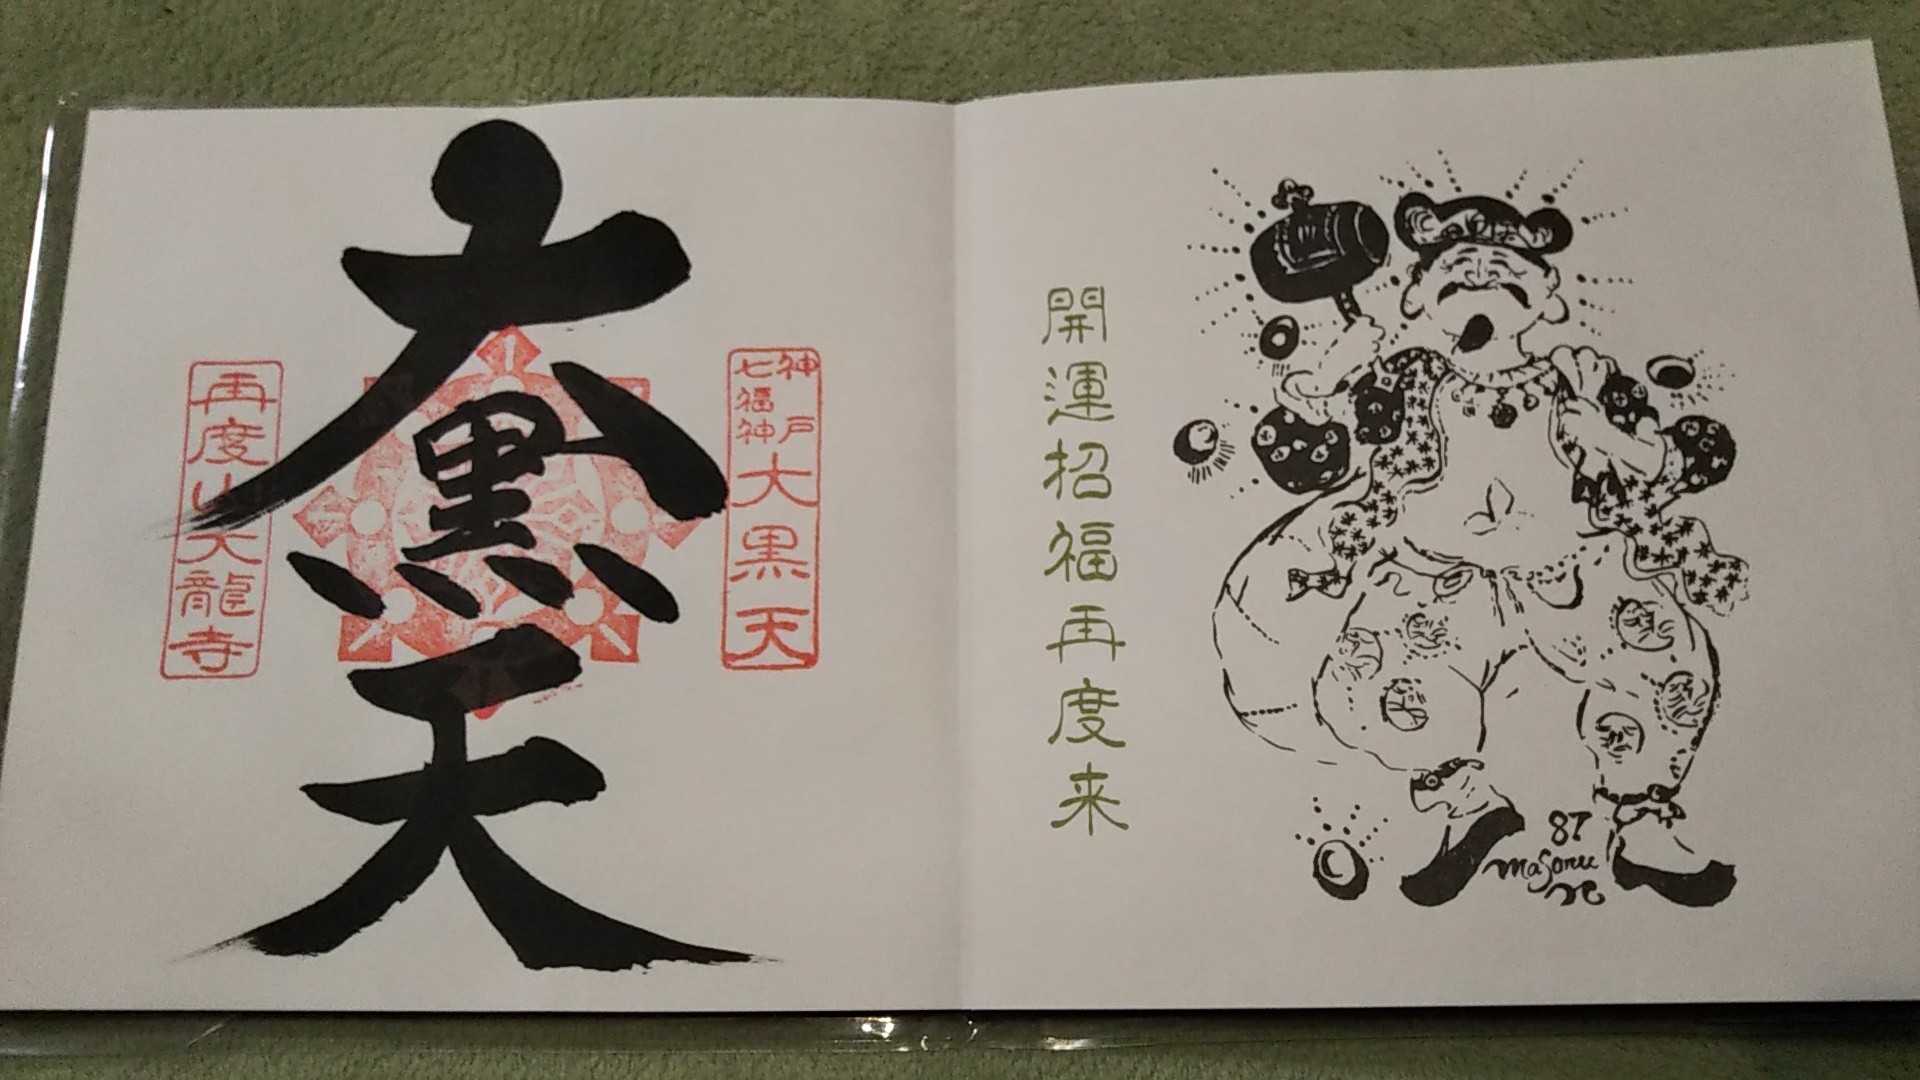 開運招福再度来
87
masaru
神戸
七福神
大黒天
大黒天
再度山大龍寺